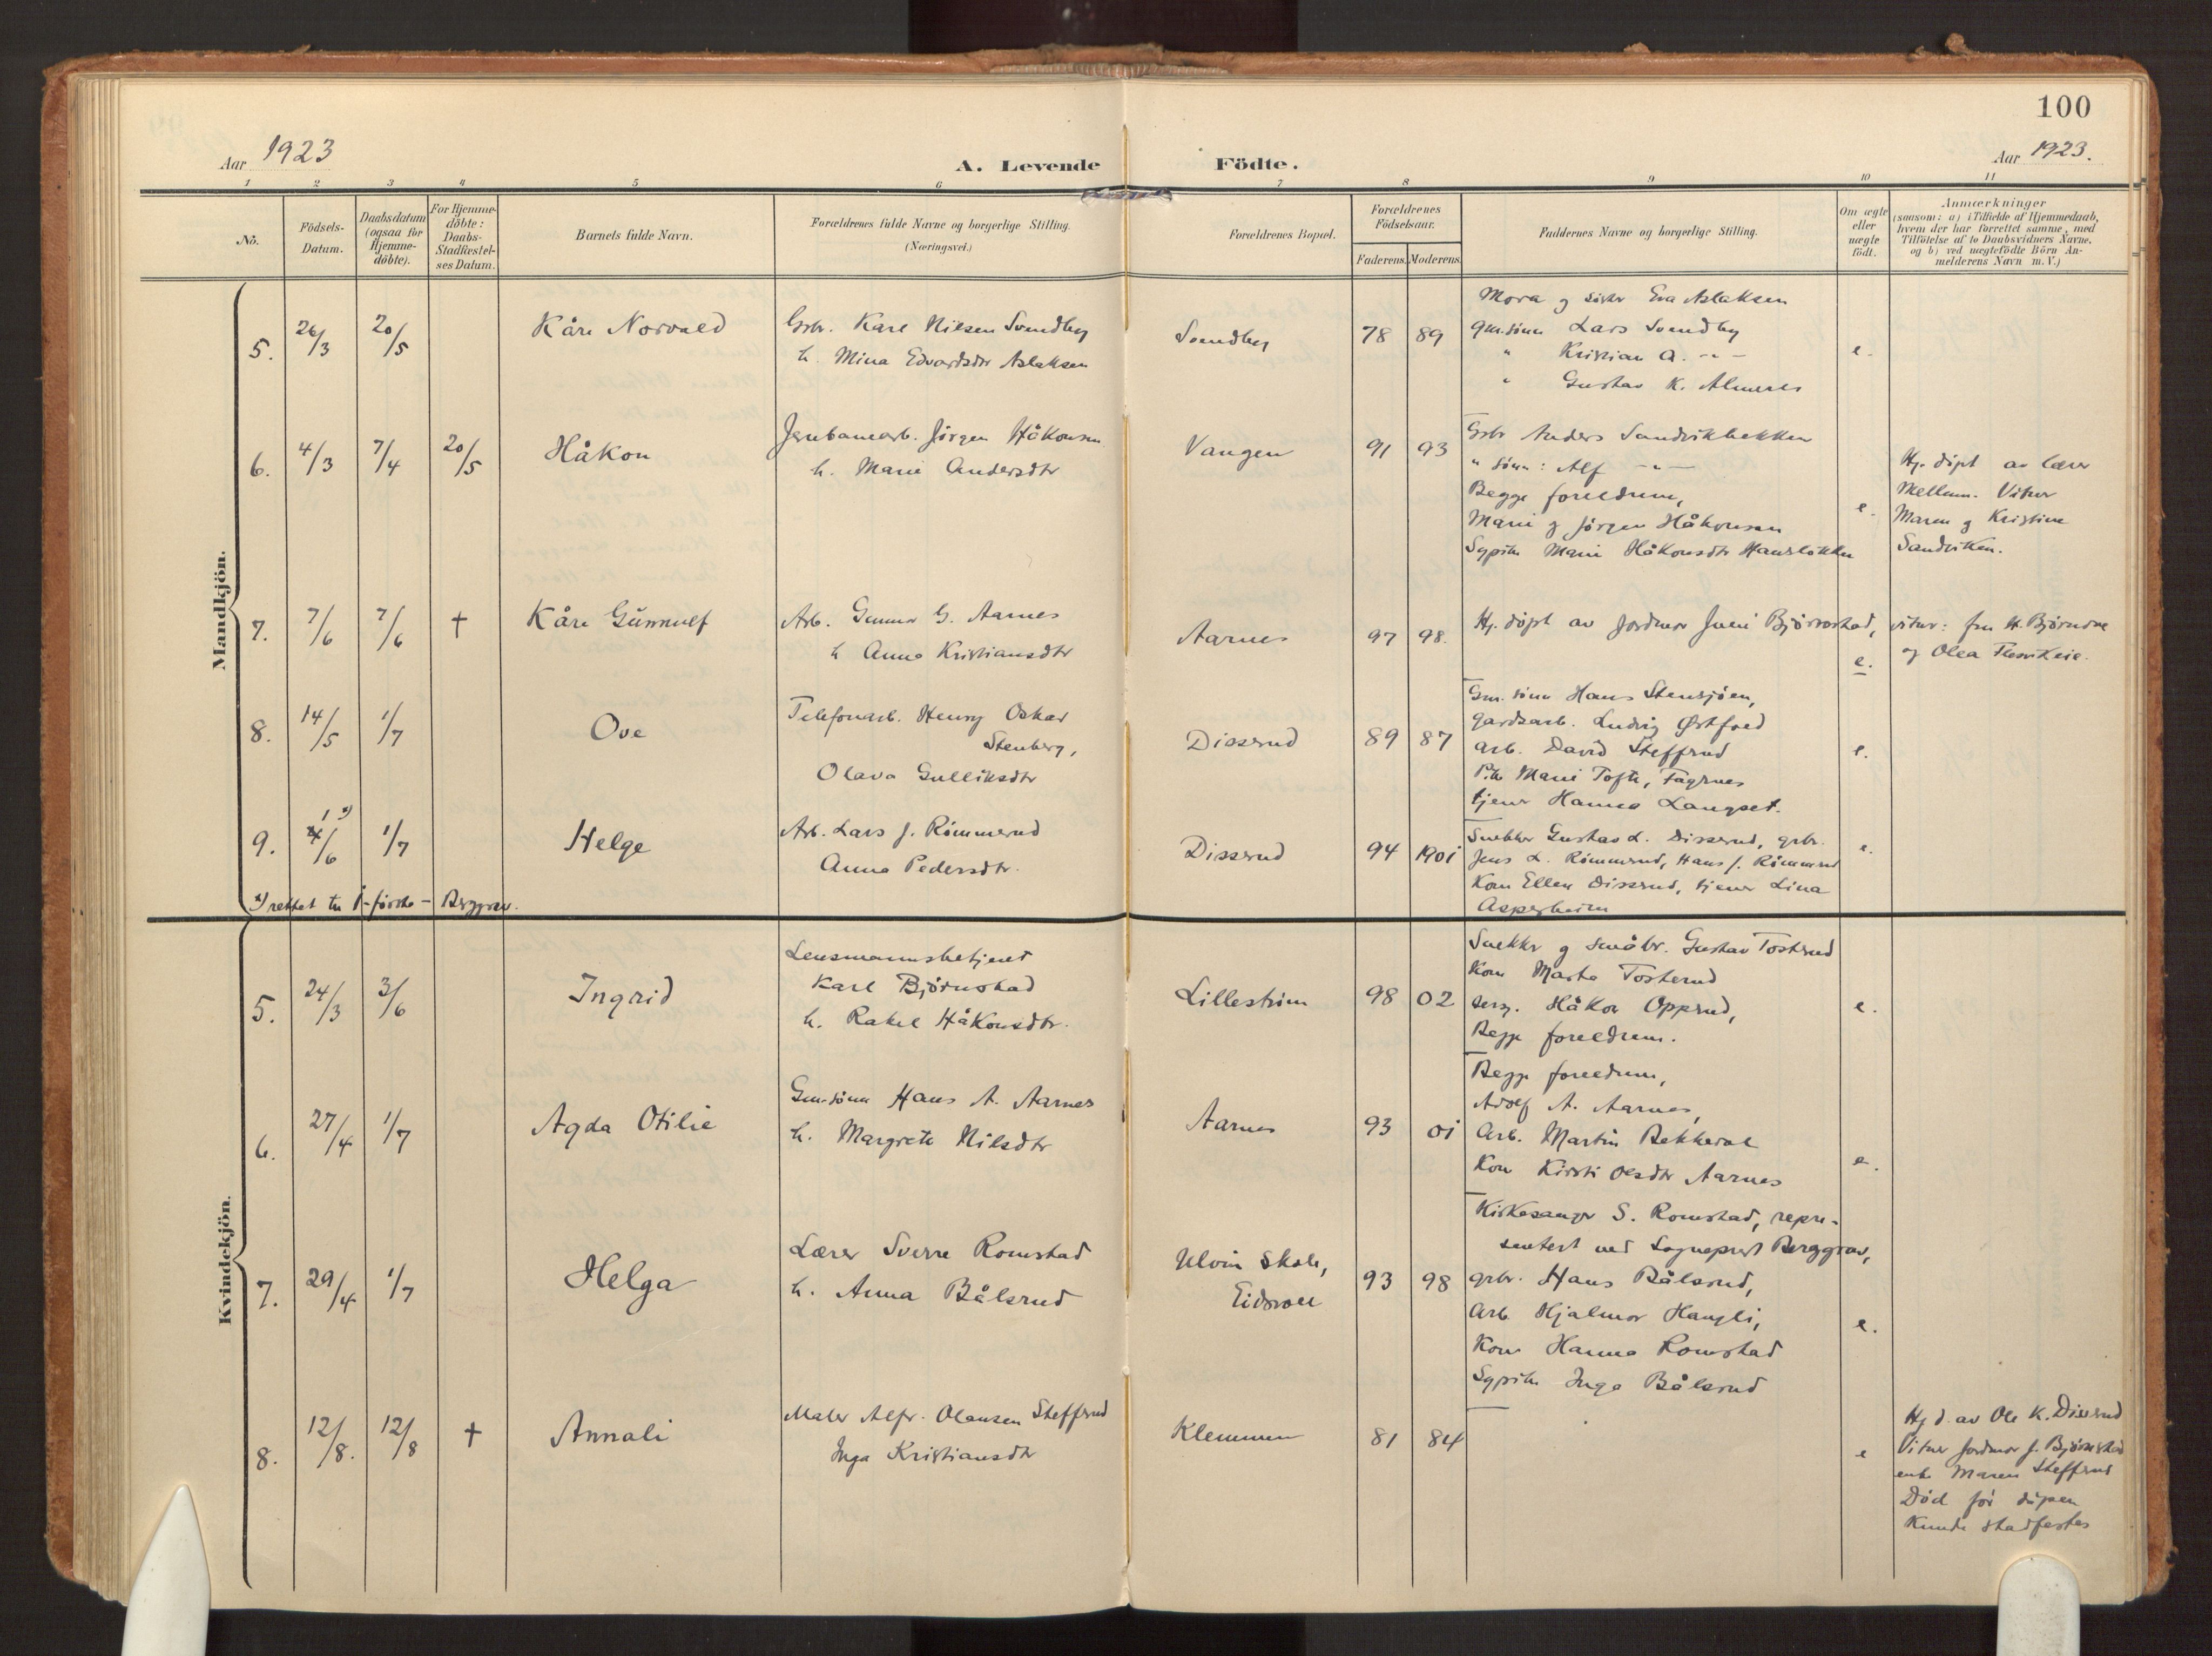 100
Aar 1923
A. Levende Födte.
Aar 1923.
1 2 3 4 5 6 7 8 9 10 11
Nö.
Födsels-
Datum.
Daabsdatum
(ogsaa for
Hjemme-
döbte).
For Hjemme-
döbte:
Daabs-
Stadfæstel-
ses Datum.
Barnets fulde Navn.
Forældrenes fulde Navne og borgerlige Stilling.
(Næringsvei.)
Forældrenes Bopæl.
Forældrenes
Födselsaar.
Faderens. Moderens.
Faddernes Navne og borgerlige Stilling.
Om ægte
eller
uægte
födt.
Anmærkninger
(saasom: a) i Tilfælde af Hjemmedaab,
hvem der har forrettet samme, med
Tilföielse af to Daabsvidners Navne,
og b) ved uægtefödte Börn An-
melderens Navn m. V.)
Mandkjön.
5. 26/3 20/5 Kåre Norvald
Gbr. Karl Nilsen Svendby
h. Mina Edvardsdtr Aslaksen
Svendby 78 89
Mora g søster Eva Aslaksen
gm.sønn Lars Svendby
" Kristian A. -"-
" Gustav K. Almeres
e.
6. 4/3 7/4 20/5 Håkon
Jernbanearb. Jørgen Håkonsen
h. Marie Andersdtr
Vangen 91 93
Gbr Anders Sandvikbekken
" sønn: Alf -"-
Begge foreldrene,
Marie g Jørgen Håkonsen
Sypike Marie Håkonsdtr Hansløkken
e.
Hj. døpt av lærer
Mellum. Vitner
Maren g Kristine
Sandviken.
7. 7/6 7/6 † Kåre Gunnulf
Arb. Gunnar G. Aarnes
h Anna Kristiansdtr
Aarnes 97 98.
Hj. døpt av Jordmor Juni Bjørnstad, vitner: fru H. Bjørndal
og Olea
e.
8. 14/5 1/7 Ove
Telefonarb. Henry Oskar
Stenberg,
Olava Gulliksdtr
Disserud 89 87
Gm. sønn Hans Stensjøen,
gardsarb. Ludvig Østfold
arb. David Steffrud
Pike Marie Tofte, Fagrnes
tjener Hanna Langset.
e.
9. 1 x) 4/6 1/7 Helge
Arb. Lars J. Rømmerud
Anna Pedersdtr.
Disserud 94 1901
Snekker Gustav L. Disserud, gbr.
Jens L. Rømmerud, Hans J. Rømmerud
Kone Ellen Disserud, tjener Lina
Asperheim
e.
x) rettet til 1 - første - Berggrav.
Kvindekjön.
5. 24/3 3/6 Ingrid
Lensmannsbetjent
Karl Bjørnstad
h. Rakel Håkonsdtr.
Lillestrøm 98 02
Snekker g småbr. Gustav Tosterud
Kone Marta Tosterud
serg. Håkon Opperud,
Begge foreldrene.
e.
6. 27/4 1/7 Agda Otilie
Gm.sønn Hans A. Aarnes
h. Margrete Nilsdtr
Aarnes 93 01
Begge foreldrene,
Adolf A. Aarnes,
Arb. Martin Bekkevol
Kone Kirsti Olsdtr Aarnes
e.
7. 29/4 1/7 Helga
Lærer Sverre Romstad
h. Anna Bålsrud
Ulvin Skole,
Eidsvoll
93 98
Kirkesanger S. Romstad, repre-
sentert ved Sogneprest Berggrav,
gbr. Hans Bålsrud,
Arb Hjalmar Haugli,
Kone Hanna Romstad
Sypike Inga Bålsrud
e.
8. 12/8. 12/8 † Annali
Maler Alfr. Olausen Steffrud
Inga Kristiansdtr
Klemmen 81 84
e
Hj d. av Ole K. Disserud
Vitner Jordmor J. Bjørnstad
enke Maren Steffrud
Død før dåpen
kunde stadfestes